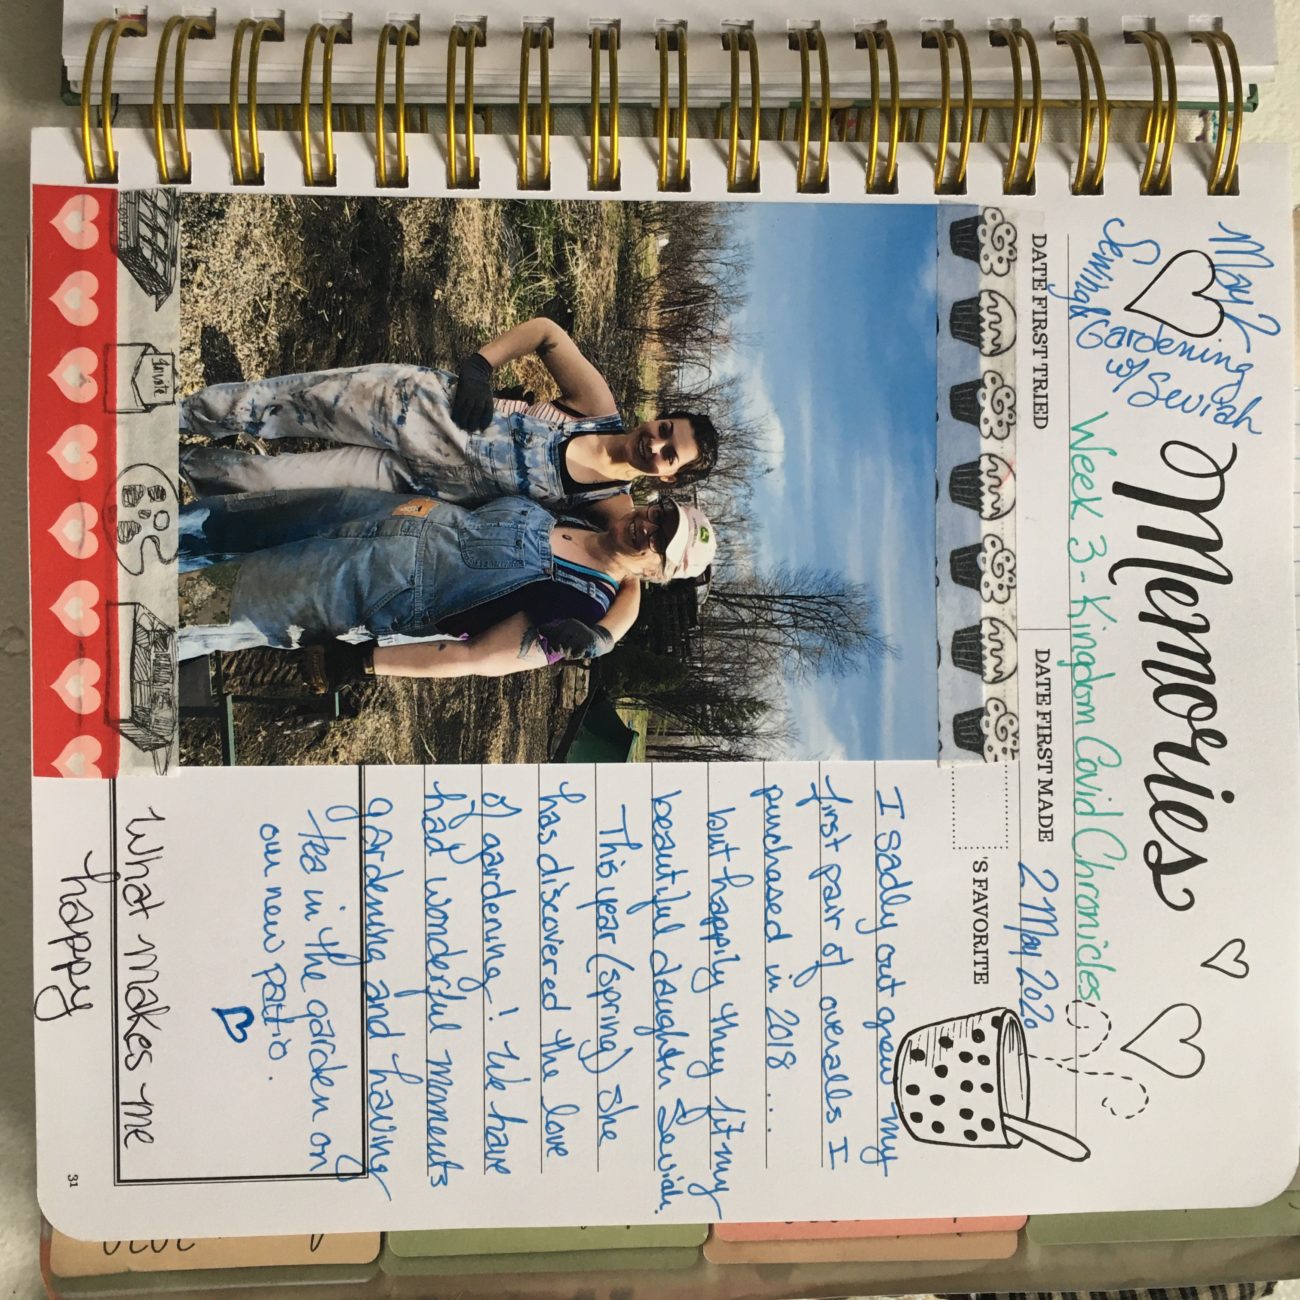 May 2
Sewing & Gardening
w/ Seviah
Memories
Week 3 - Kingdom Covid Chronicles
DATE FIRST TRIED
DATE FIRST MADE
2 May 2020
'S FAVORITE
I sadly out grew my
first pair of overalls I
purchased in 2018...
but happily they fit my
beautiful daughter Seviah.
This year (spring) she
has discovered the love
of gardening! We have
had wonderful moments
gardening and having
tea in the garden on
our new patio.
Invite
What makes me
happy
31
2020